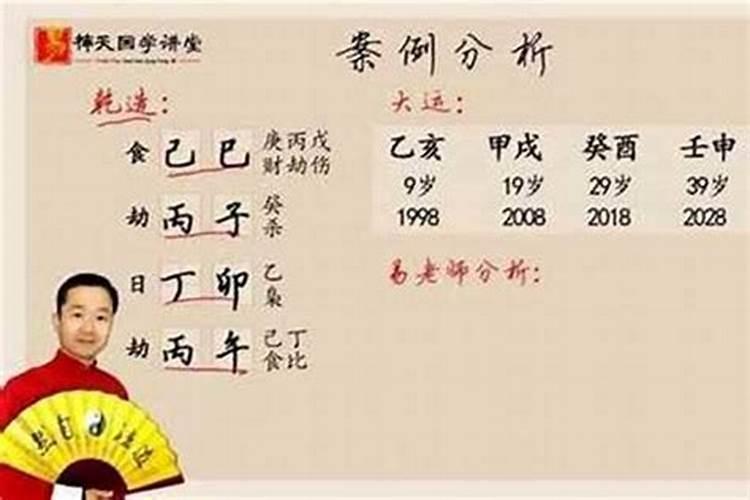 易 博天国学讲堂
案例分析
乾造：
食 己巳 庚丙戊
财劫伤
劫 丙子 癸
杀
日 丁卯 乙
枭
劫 丙午 己丁
食比
大运：
乙亥 甲戌 癸酉 壬申
9岁 19岁 29岁 39岁
1998 2008 2018 2028
易老师分析：